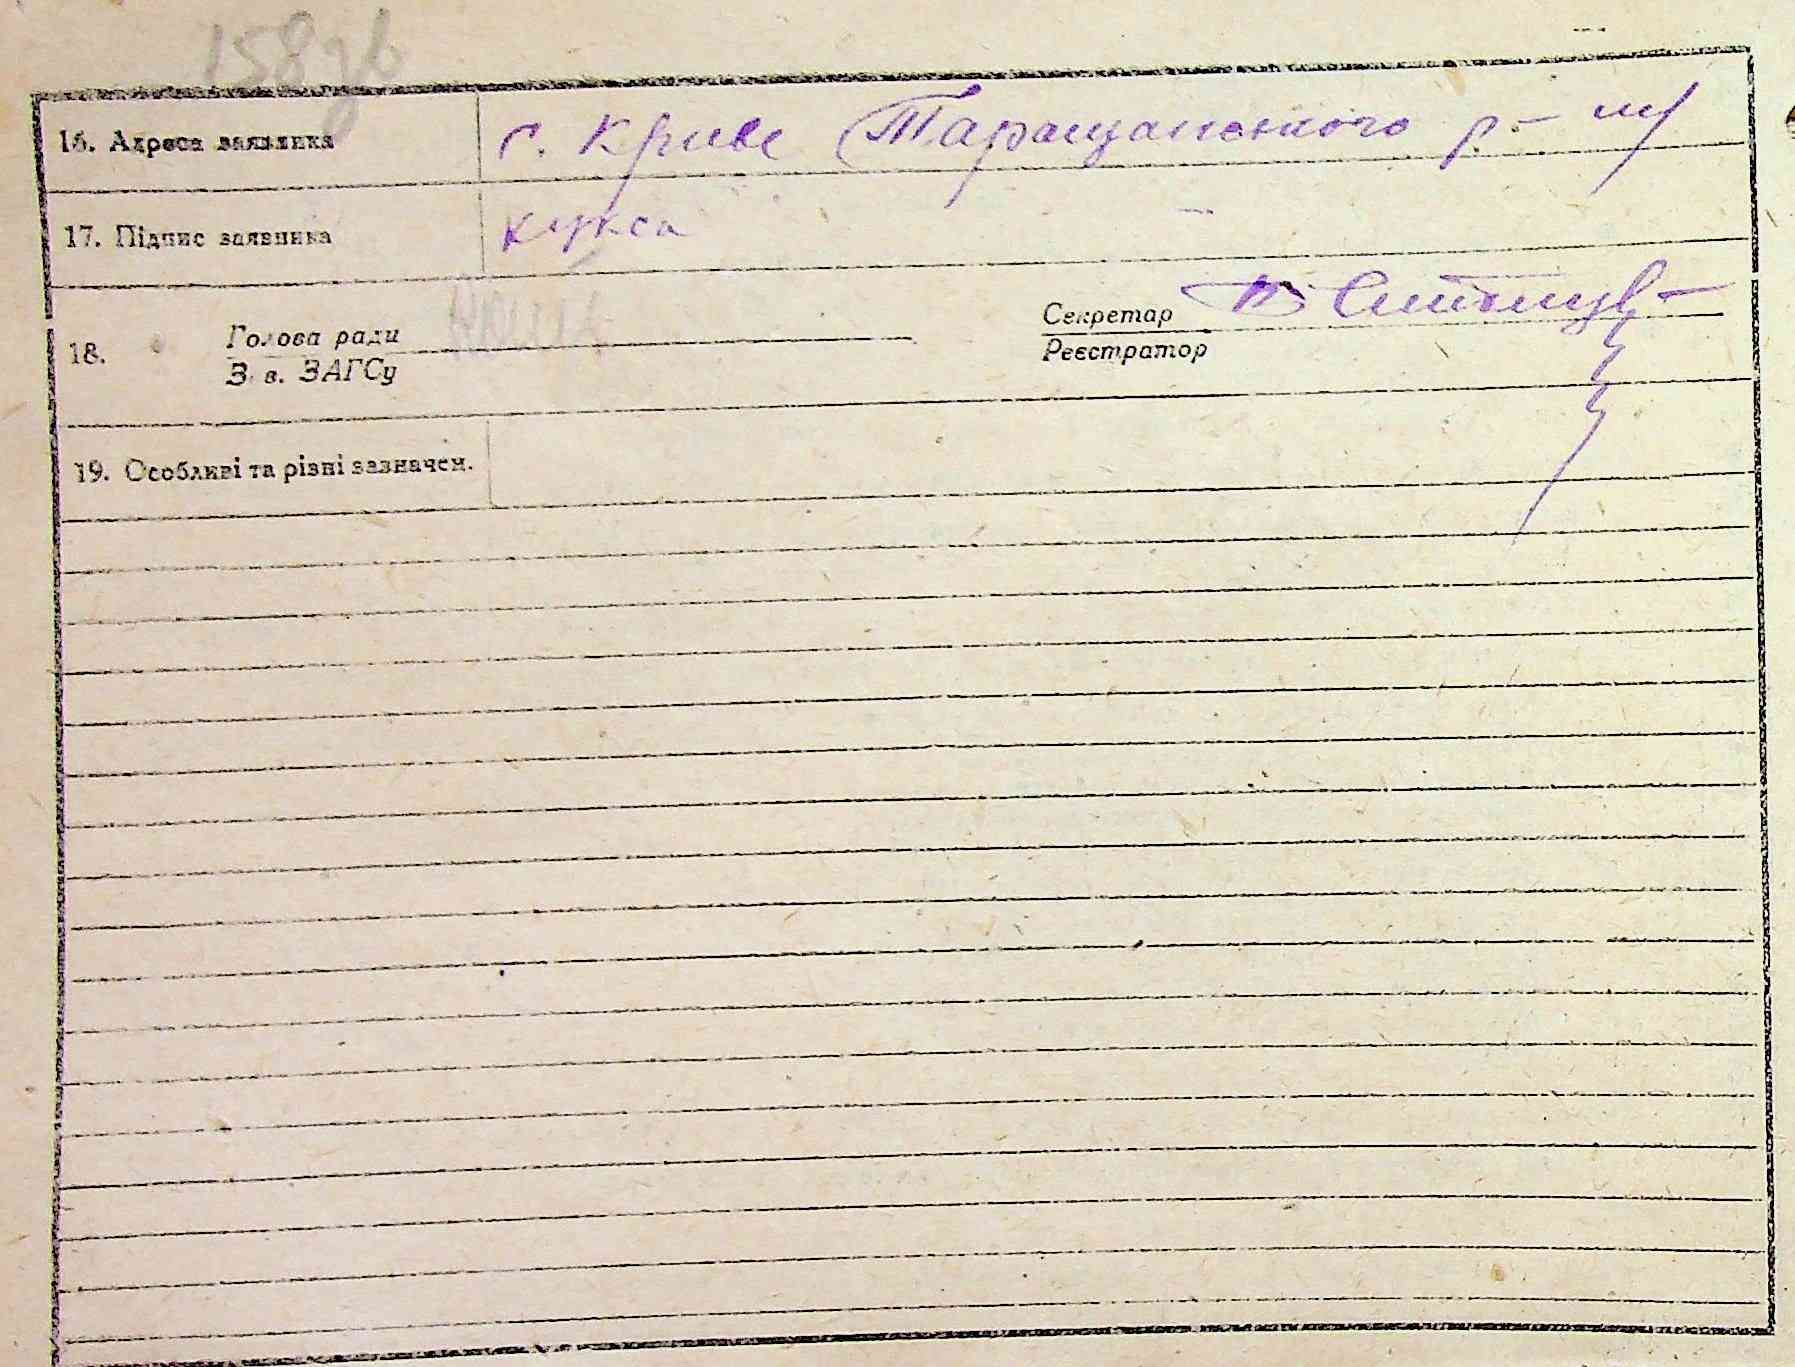 158зв
16. Адреса заявника с. Криве Таращанського р-ну
17. Підпис заявника Кукса
18. Голова ради Секретар
Зав. ЗАГСу Реєстратор
19. Особливі та різні зазначен.